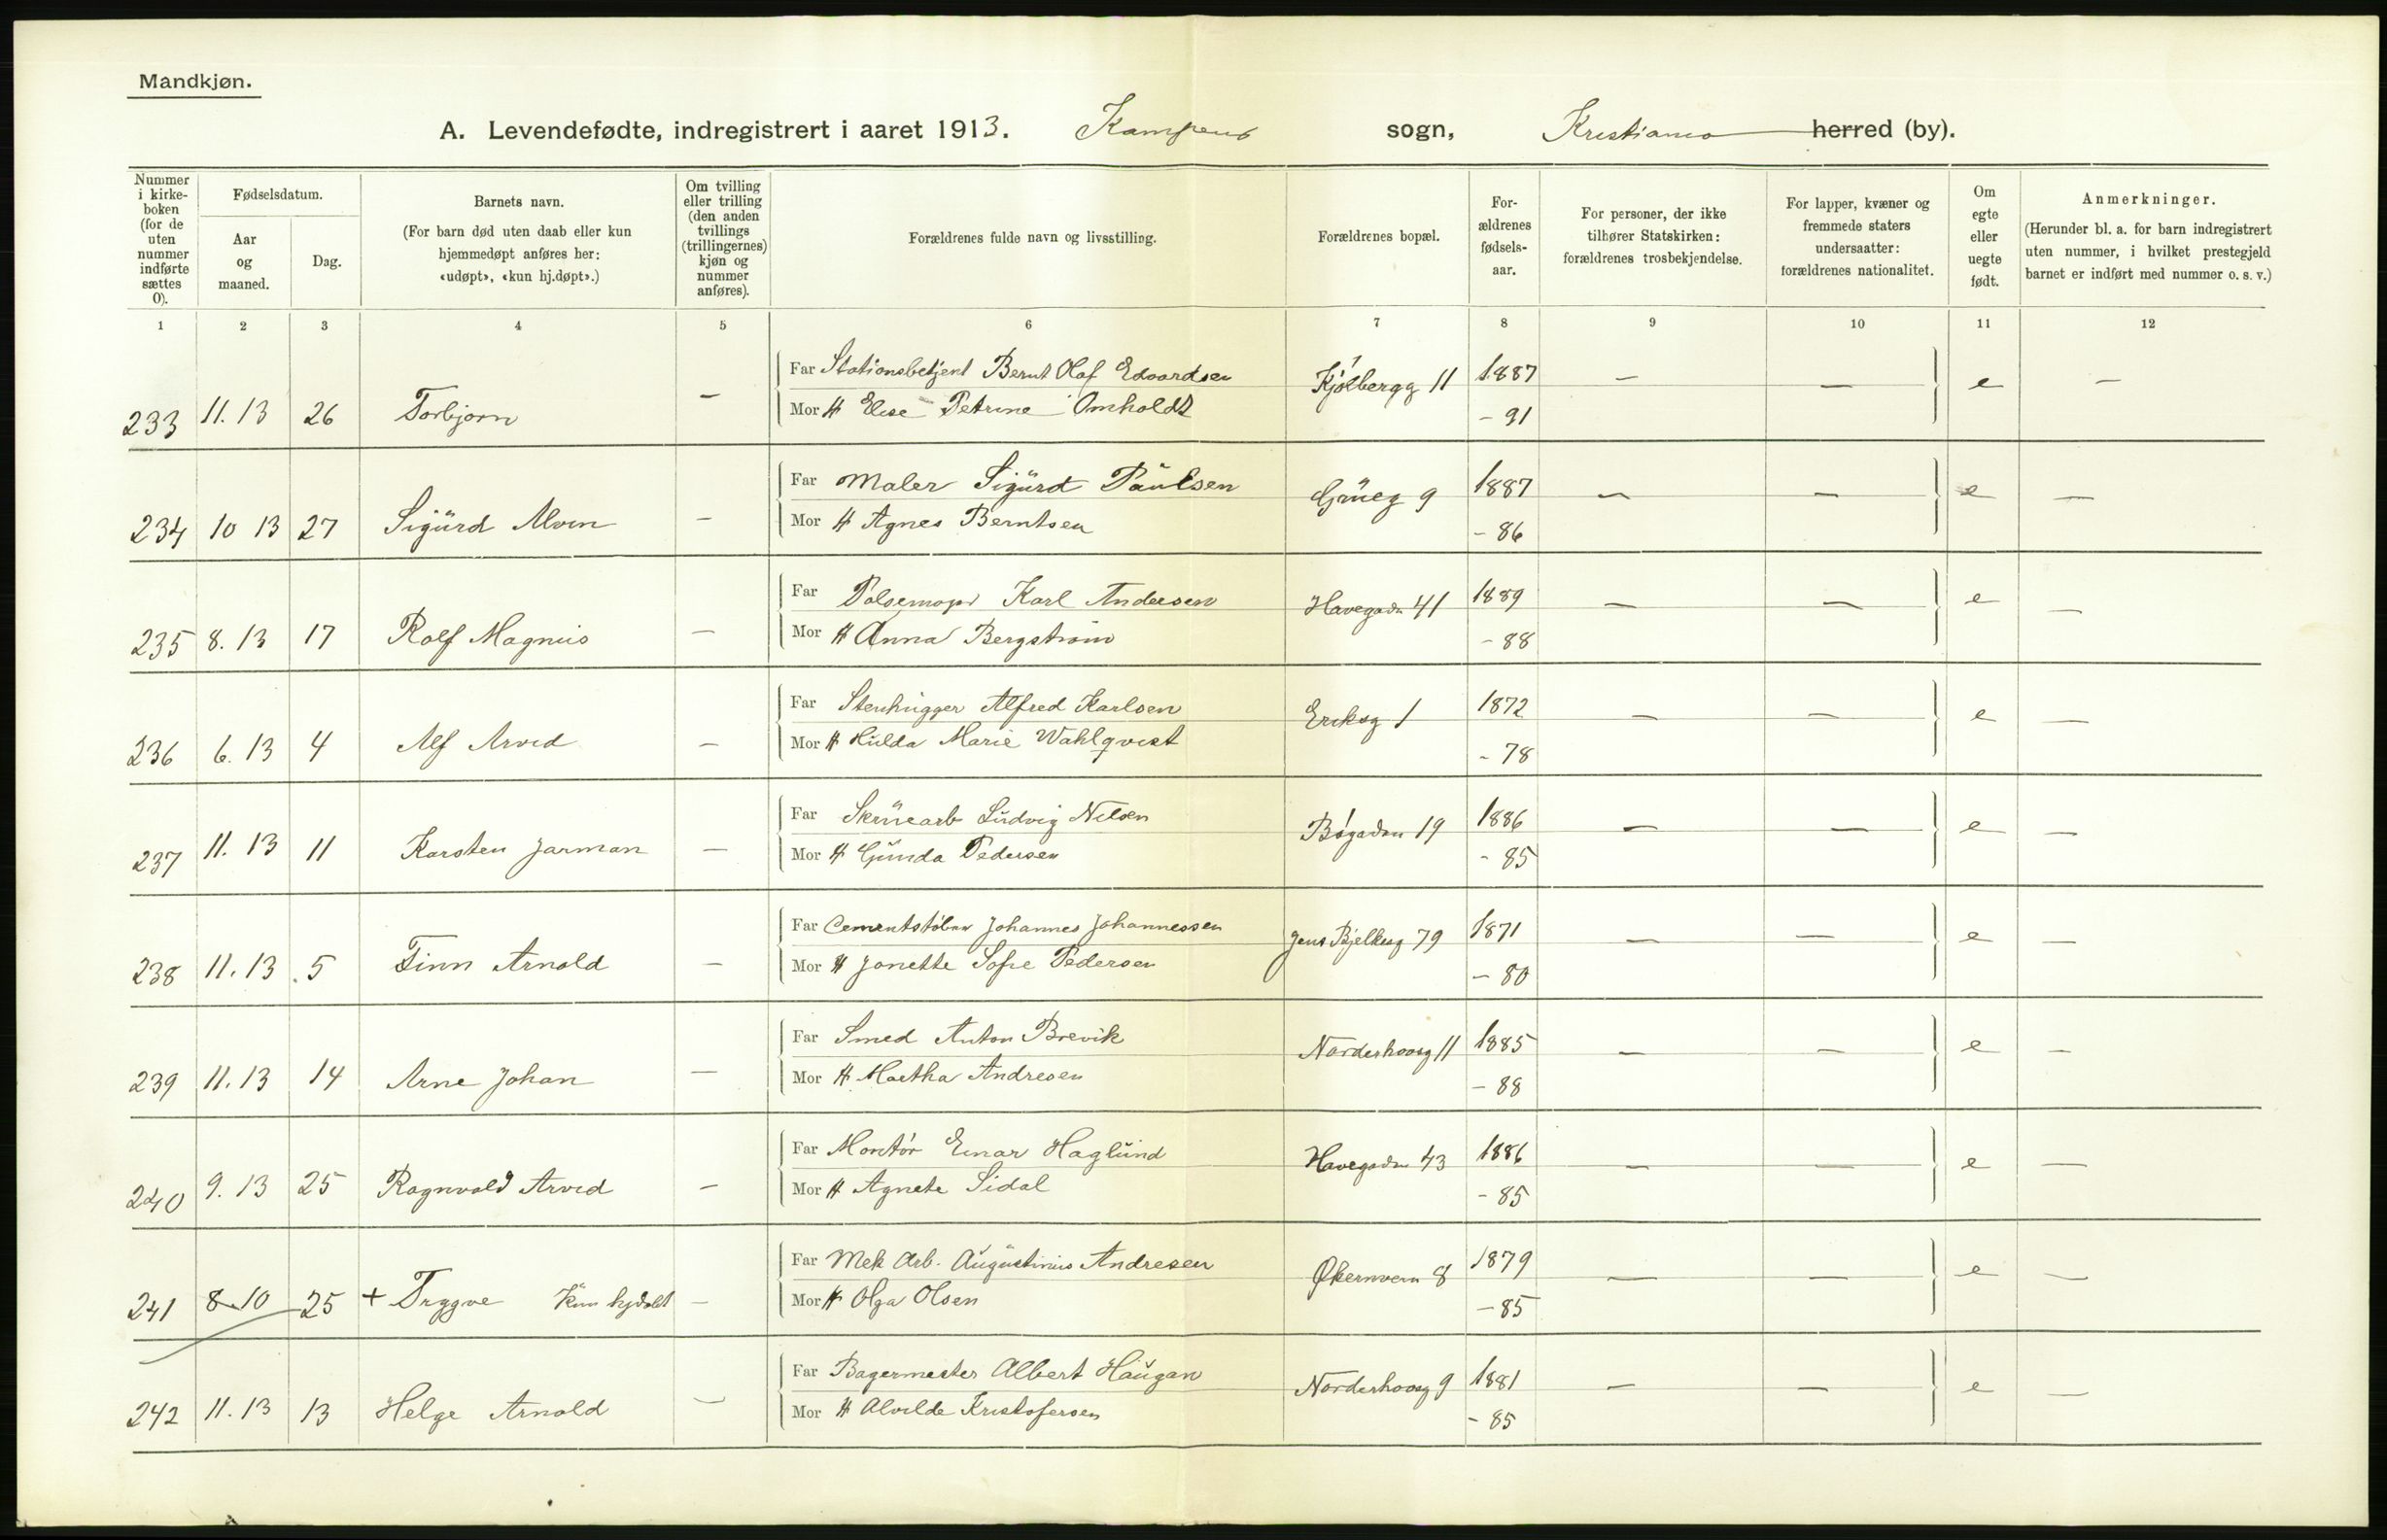 Mandkjøn.
A. Levendefødte, indregistrert i aaret 1913. Kampens sogn, Kristiania herred (by).
Nummer i kirke-boken (for de uten nummer indførte sættes 0).
Fødselsdatum.
Aar og maaned.
Dag.
Barnets navn.
(For barn død uten daab eller kun hjemmedøpt anføres her: «udøpt», «kun hj.døpt».)
Om tvilling eller trilling (den anden tvillings (trillingernes) kjøn og nummer anføres).
Forældrenes fulde navn og livsstilling.
Forældrenes bopæl.
For-ældrenes fødsels-aar.
For personer, der ikke tilhører Statskirken: forældrenes trosbekjendelse.
For lapper, kvæner og fremmede staters undersaatter: forældrenes nationalitet.
Om egte eller uegte født.
Anmerkninger.
(Herunder bl. a. for barn indregistrert uten nummer, i hvilket prestegjeld barnet er indført med nummer o. s. v.)
1 2 3 4 5 6 7 8 9 10 11 12
Far Stationsbetjent Bernt Olaf Edvardsen Kjølbergg 11 1887 — — e —
233 11. 13 26 Torbjørn — Mor H Elise Petrine Omholdt - 91
Far Maler Sigurd Paulsen Grüeg 9 1887 — — e —
234 10 13 27 Sigurd Alvin — Mor H Agnes Berntsen - 86
Far Pølsemager Karl Andersen Havegadn 41 1889 — — e —
235 8. 13 17 Rolf Magnus — Mor H Anna Bergstrøm - 88
Far Stenhugger Alfred Karlsen Eriksg 1 1872 — — e —
236 6. 13 4 Alf Arvid — Mor H Hulda Marie Wahlqvist - 78
Far Skruearb Ludvig Nilsen Bøgadon 19 1886 — — e —
237 11. 13 11 Karsten Jarman — Mor H Gunda Pedersen - 85
Far Cementstøber Johannes Johannessen Jens Bjelkesg 79 1871 — — e —
238 11. 13 5 Finn Arnold — Mor H Janette Sofie Pedersen - 80
Far Smed Anton Brevik Norderhovsg 11 1885 — — e —
239 11. 13 14 Arne Johan — Mor H Martha Andresen - 88
Far Montør Einar Haglund Havegadn 43 1886 — — e —
240 9. 13 25 Ragnvald Arvid — Mor H Agnete Sidal - 85
Far Mek Arb. Augustinus Andresen Økernvern 8 1879 — — e —
241 8.10 25 + Trygve Kun hjdøbt — Mor H Olga Olsen - 85
Far Bagermester Albert Haugan Norderhovsg 9 1881 — — e —
242 11. 13 13 Helge Arnold — Mor H Alvilde Kristofersen - 85